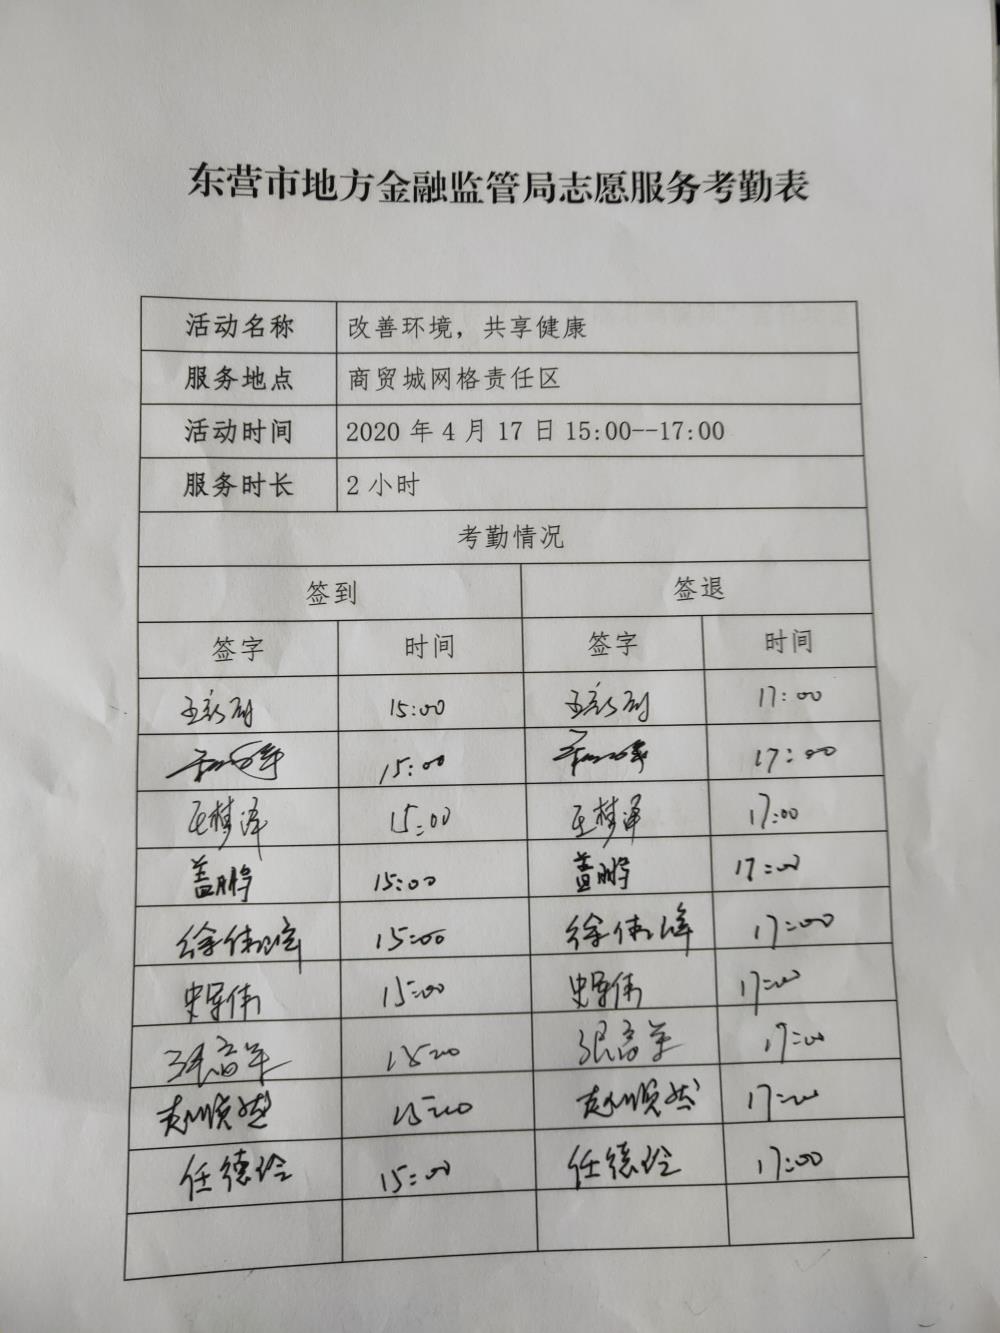 东营市地方金融监管局志愿服务考勤表
活动名称 改善环境，共享健康
服务地点 商贸城网格责任区
活动时间 2020 年 4 月 17 日 15:00--17:00
服务时长 2 小时
考勤情况
签到 签退
签字 时间 签字 时间
15:00 17:00
15:00 17:00
王梦泽 15:00 王梦泽 17:00
盖鹏 15:00 盖鹏 17:00
徐伟峰 15:00 徐伟峰 17:00
史军伟 15:00 史军伟 17:00
15:00 17:00
赵顺然 15:00 赵顺然 17:00
任德玲 15:00 任德玲 17:00